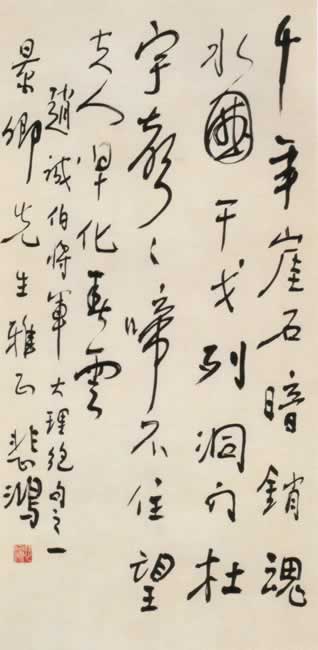 千年崖石暗銷魂
水國干戈到洞門杜
宇聲〻啼不住望
夫人早化春雲
趙誠伯將軍大理絕句之一
景卿先生雅正悲鴻